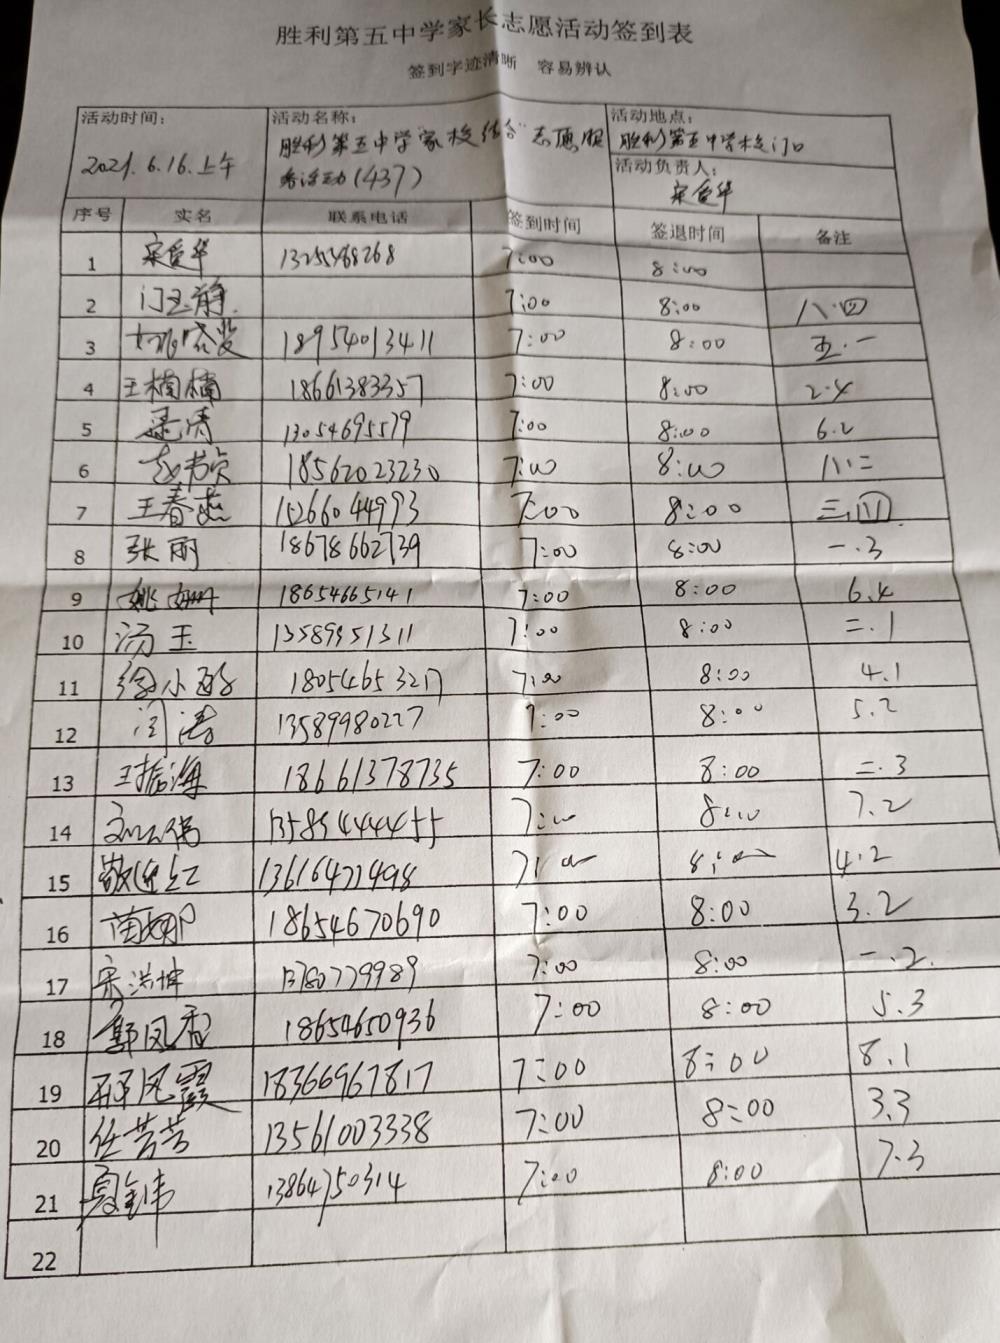 胜利第五中学家长志愿活动签到表
签到字迹清晰 容易辨认
活动时间： 活动名称： 活动地点：
2021.6.16.上午 胜利第五中学"家校结合"志愿服务活动(437) 胜利第五中学校门口
活动负责人：
宋爱华
序号 实名 联系电话 签到时间 签退时间 备注
1 宋爱华 13255468268 7:00 8:00
2 门玉静 7:00 8:00 八·四
3 18954013411 7:00 8:00 五·一
4 王楠楠 18661383357 7:00 8:00 2·4
5 13054695579 7:00 8:00 6.2
6 18562023230 7:00 8:00 八·二
7 王春燕 15266044993 7:00 8:00 三.四
8 张丽 18678662739 7:00 8:00 一.3
9 姚姗姗 18654665141 7:00 8:00 6.4
10 汤玉 13589951311 7:00 8:00 二.1
11 徐小 18054653217 7:00 8:00 4.1
12 闫涛 13589980227 7:00 8:00 5.2
13 王振海 18661378735 7:00 8:00 二.3
14 13589444455 7:00 8:00 7.2
15 13616472498 7:00 8:00 4.2
16 蔺娜 18654670690 7:00 8:00 3.2
17 宋洪坤 13780779989 7:00 8:00 一.2.
18 郭凤香 18654650936 7:00 8:00 5.3
19 邢凤霞 18366967817 7:00 8:00 8.1
20 任芳芳 13561003338 7:00 8:00 3.3
21 夏金伟 13864750314 7:00 8:00 7.3
22